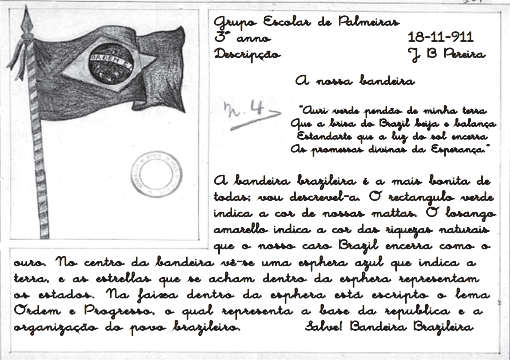 Grupo Escolar de Palmeiras
3º anno 18-11-911
Descripção J. B Pereira
A nossa bandeira
n. 4
"Auri verde pendão de minha terra
Que a brisa do Brazil beija e balança
Estandarte que a luz do sol encerra
As promessas divinas da Esperança."
ORDEM E
A bandeira brazileira é a mais bonita de
todas; vou descrevel-a. O rectangulo verde
indica a cor de nossas mattas. O losango
amarello indica a cor das riquezas naturais
que o nosso caro Brazil encerra como o
ouro. No centro da bandeira vê-se uma esphera azul que indica a
terra, e as estrellas que se acham dentro da esphera representam
os estados. Na faixa dentro da esphera está escripto o lema
Ordem e Progresso, o qual representa a base da republica e a
organização do povo brazileiro. Salve! Bandeira Brazileira